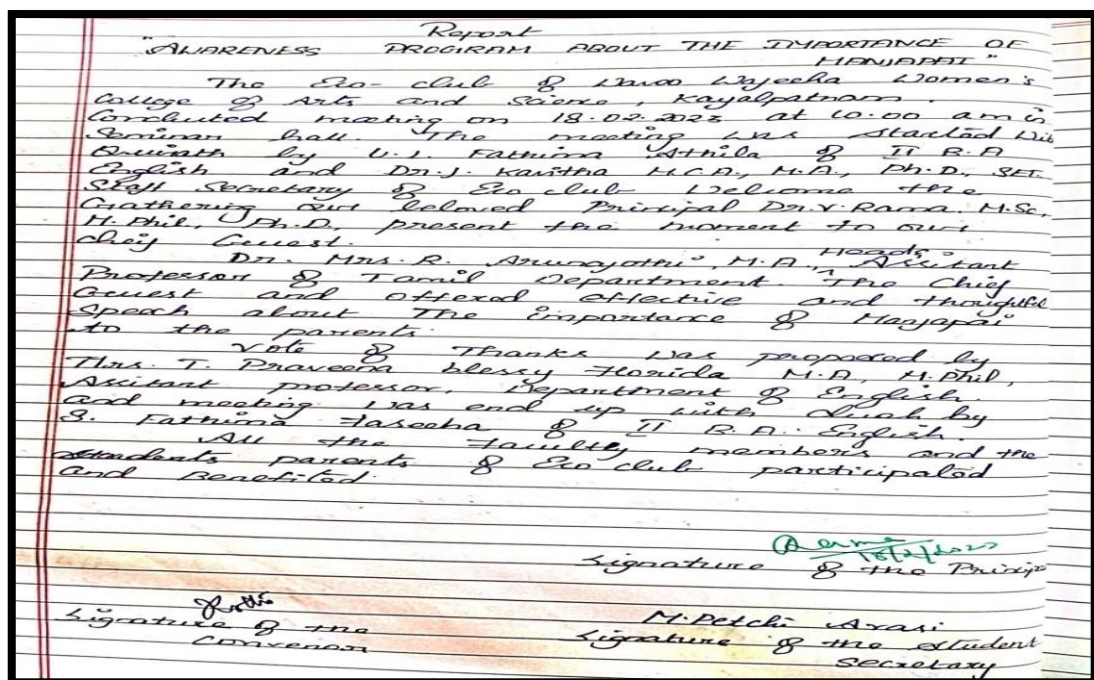 Report
"AWARENESS PROGRAM ABOUT THE IMPORTANCE OF
MANJAPAI"
The Eco-club of Wavoo Wajeeha Women's
College of Arts and Science, Kayalpatnam.
Conducted meeting on 18.02.2023 at 10.00 am in
Seminar hall. The meeting was started
Qwirath by U.J. Fathima Athila of II B.A
English and Dr.J. Kavitha M.C.A., M.A., Ph.D., SET.
Staff Secretary of Eco club Welcome the
Gathering our beloved Principal Dr.V. Rama. M.Sc,
M.Phil., Ph.D., present the moment to our
cheif Guest.
Dr. Mrs. R. Arunajothi, M.A., Heads, Assitant
Professor of Tamil Department. The Chief
Guest and offered effective and thoughtful
Speech about The importance of Manjapai
to the parents.
Vote of Thanks was proposed by
Mrs. T. Praveena blessy Florida M.A, M.Phil,
Assitant professor, Department of English.
and meeting was end up with duah by
S. Fathima Haseeha of II B.A. English.
All the faculty members and the
students parents of Eco club participated
and Benefited.
18/2/2023
Signature of the
M.Petchi Arasi
Signature of the Signature of the student
Convenor Secretary